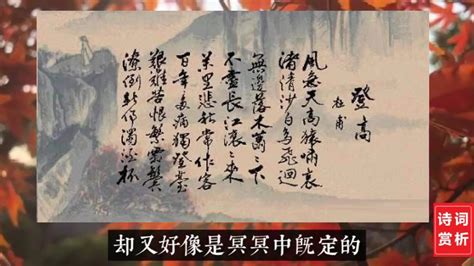 登高
杜甫
風急天高猿嘯哀
渚清沙白鳥飛迴
無邊落木蕭〻下
不盡長江滾〻來
萬里悲秋常作客
百年多病獨登臺
艱難苦恨繁霜鬢
潦倒新停濁酒杯
诗词
赏析
却又好像是冥冥中既定的